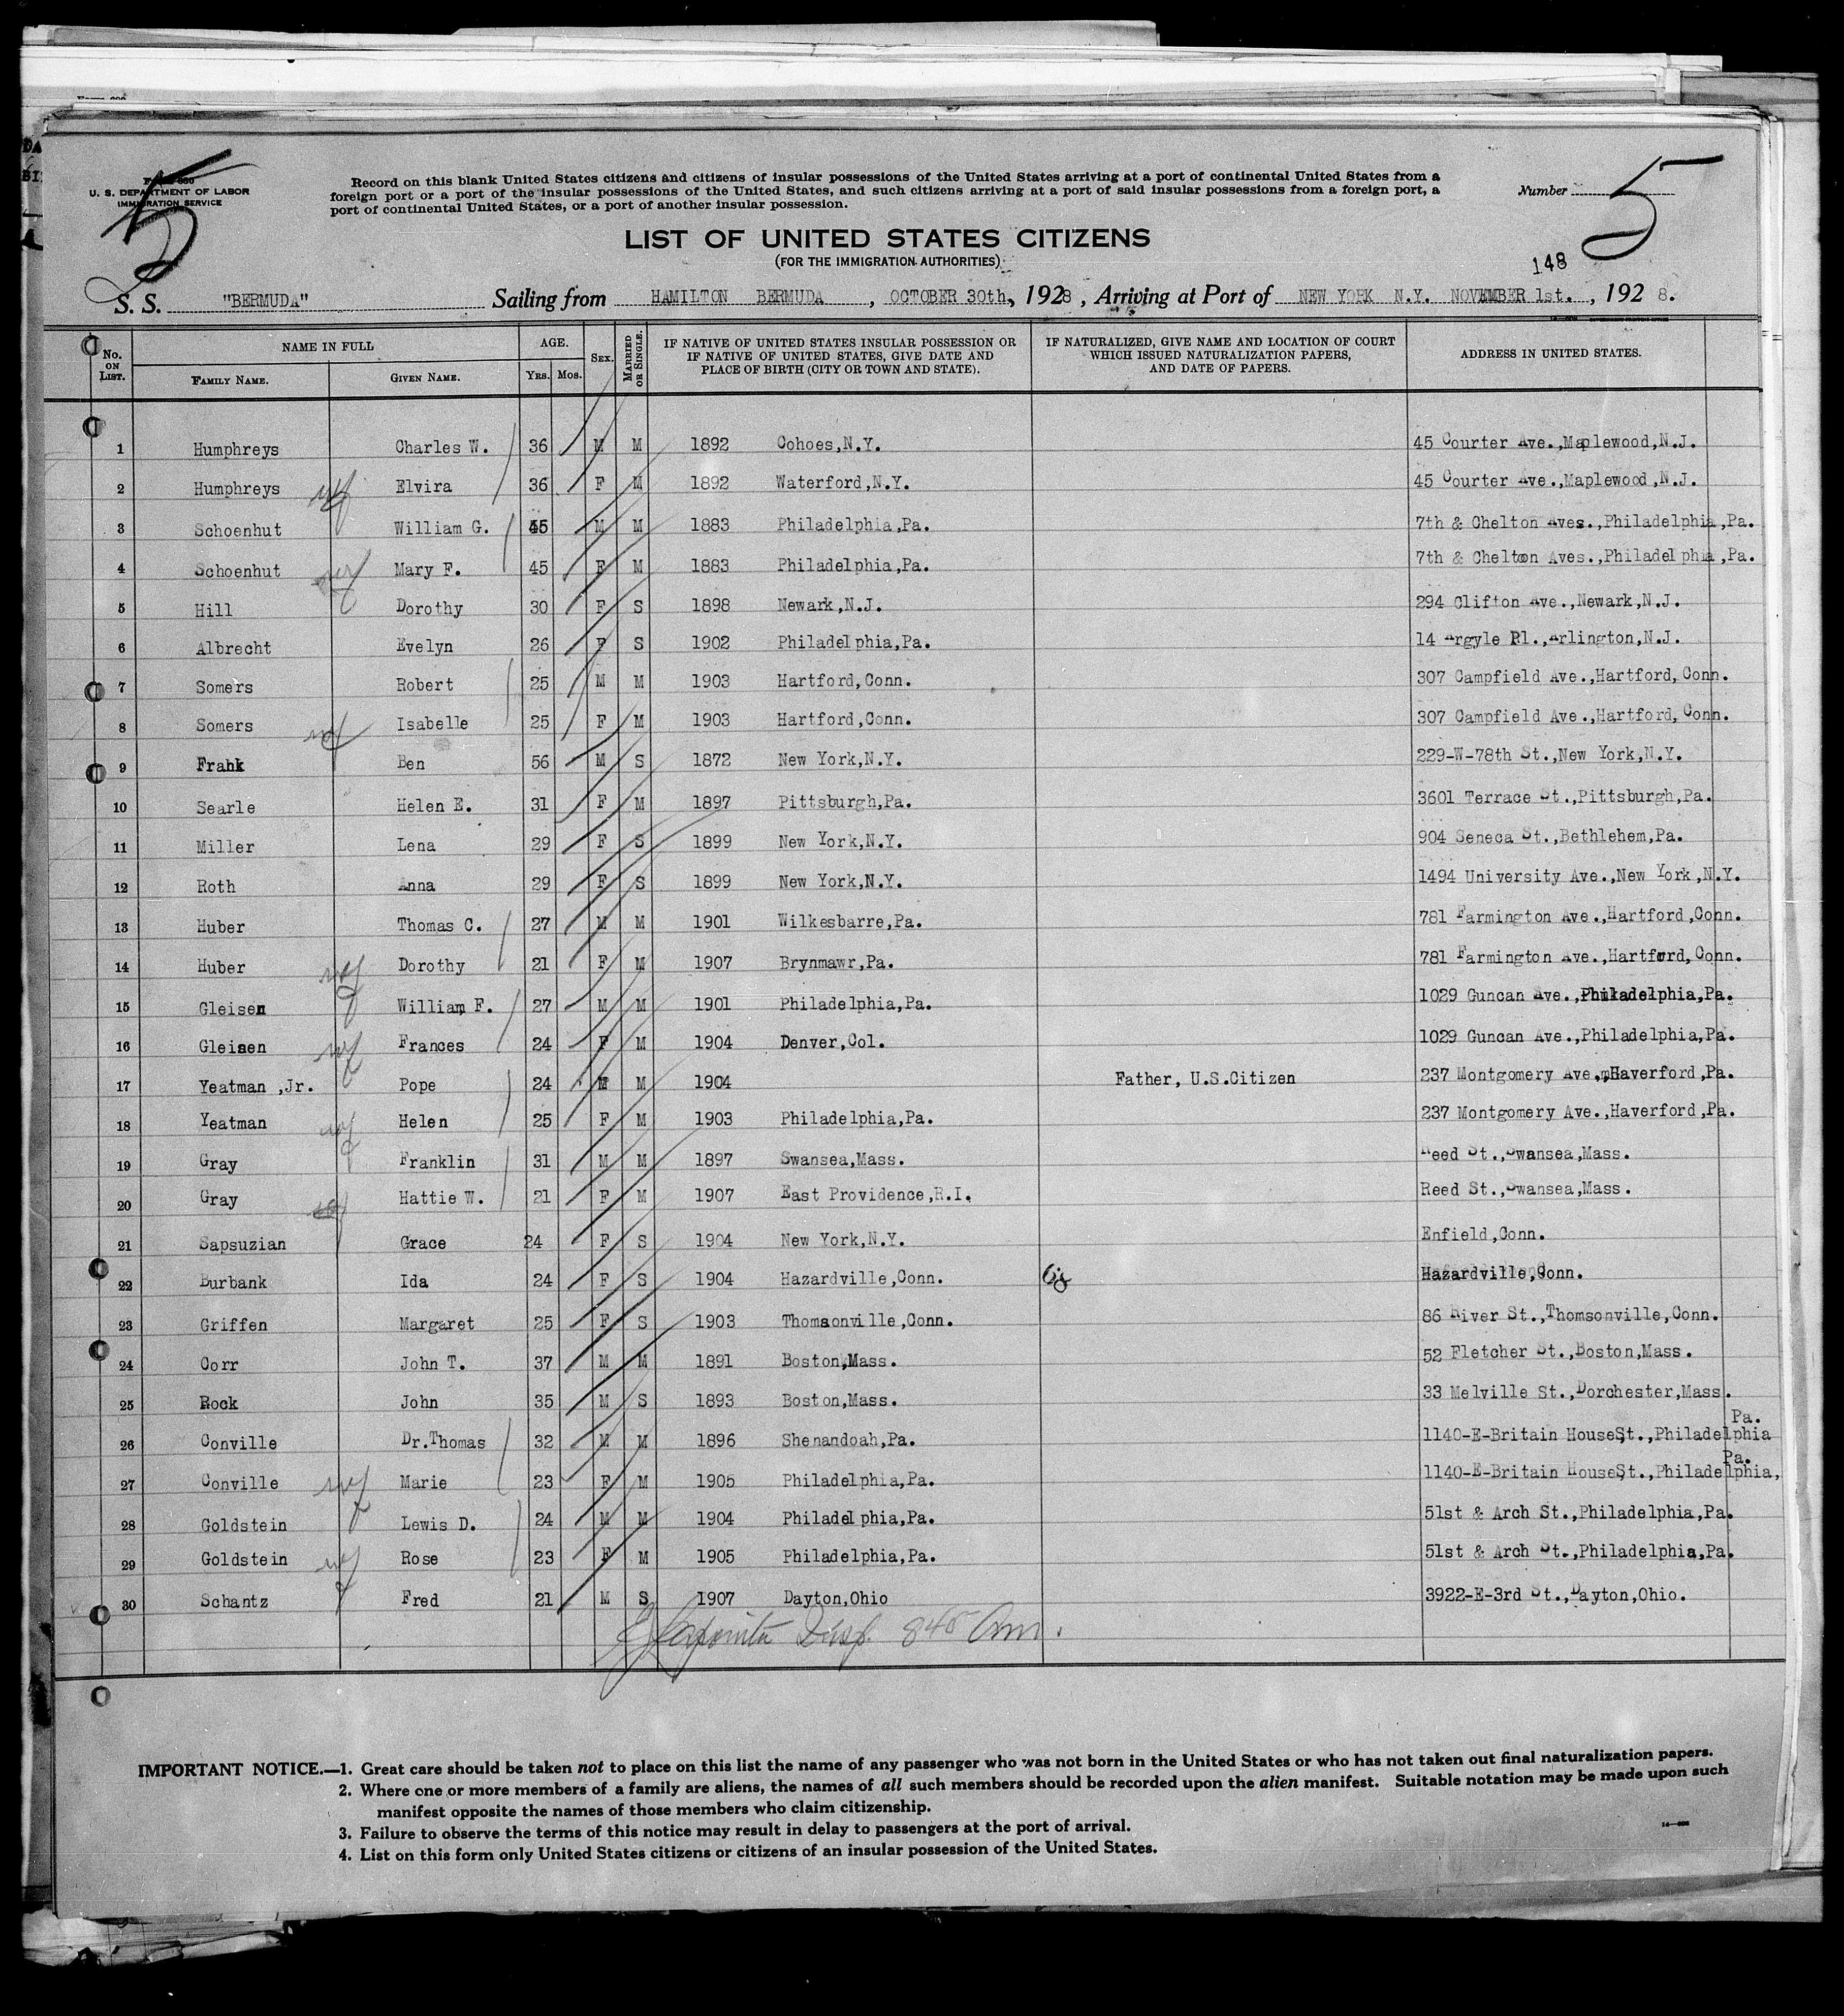 5
Form 630
U. S. DEPARTMENT OF LABOR
IMMIGRATION SERVICE
Record on this blank United States citizens and citizens of insular possessions of the United States arriving at a port of continental United States from a
foreign port or a port of the insular possessions of the United States, and such citizens arriving at a port of said insular possessions from a foreign port, a
port of continental United States, or a port of another insular possession.
Number 5
LIST OF UNITED STATES CITIZENS
(FOR THE IMMIGRATION AUTHORITIES)
148
S. S. "BERMUDA" Sailing from HAMILTON BERMUDA, OCTOBER 30th, 1928, Arriving at Port of NEW YORK N.Y. NOVEMBER 1st., 1928.
No. ON LIST. NAME IN FULL FAMILY NAME. GIVEN NAME. AGE. YRS. MOS. SEX. MARRIED OR SINGLE. IF NATIVE OF UNITED STATES INSULAR POSSESSION OR IF NATIVE OF UNITED STATES, GIVE DATE AND PLACE OF BIRTH (CITY OR TOWN AND STATE). IF NATURALIZED, GIVE NAME AND LOCATION OF COURT WHICH ISSUED NATURALIZATION PAPERS, AND DATE OF PAPERS. ADDRESS IN UNITED STATES.
1 Humphreys Charles W. 36 M M 1892 Cohoes,N.Y. 45 Courter Ave.,Maplewood,N.J.
2 Humphreys wf Elvira 36 F M 1892 Waterford,N.Y. 45 Courter Ave.,Maplewood,N.J.
3 Schoenhut William G. 45 M M 1883 Philadelphia,Pa. 7th & Chelton Aves.,Philadelphia,Pa.
4 Schoenhut wf Mary F. 45 F M 1883 Philadelphia,Pa. 7th & Chelton Aves.,Philadelphia,Pa.
5 Hill Dorothy 30 F S 1898 Newark,N.J. 294 Clifton Ave.,Newark,N.J.
6 Albrecht Evelyn 26 F S 1902 Philadelphia,Pa. 14 Argyle Pl.,Arlington,N.J.
7 Somers Robert 25 M M 1903 Hartford,Conn. 307 Campfield Ave.,Hartford,Conn.
8 Somers wf Isabelle 25 F M 1903 Hartford,Conn. 307 Campfield Ave.,Hartford,Conn.
9 Frank Ben 56 M S 1872 New York,N.Y. 229-W-78th St.,New York,N.Y.
10 Searle Helen E. 31 F M 1897 Pittsburgh,Pa. 3601 Terrace St.,Pittsburgh,Pa.
11 Miller Lena 29 F S 1899 New York,N.Y. 904 Seneca St.,Bethlehem,Pa.
12 Roth Anna 29 F S 1899 New York,N.Y. 1494 University Ave.,New York,N.Y.
13 Huber Thomas C. 27 M M 1901 Wilkesbarre,Pa. 781 Farmington Ave.,Hartford,Conn.
14 Huber wf Dorothy 21 F M 1907 Brynmawr,Pa. 781 Farmington Ave.,Hartford,Conn.
15 Gleisen William F. 27 M M 1901 Philadelphia,Pa. 1029 Guncan Ave.,Philadelphia,Pa.
16 Gleisen wf Frances 24 F M 1904 Denver,Col. 1029 Guncan Ave.,Philadelphia,Pa.
17 Yeatman ,Jr. Pope 24 M M 1904 Father, U.S.Citizen 237 Montgomery Ave.,Haverford,Pa.
18 Yeatman wf Helen 25 F M 1903 Philadelphia,Pa. 237 Montgomery Ave.,Haverford,Pa.
19 Gray Franklin 31 M M 1897 Swansea,Mass. Reed St.,Swansea,Mass.
20 Gray wf Hattie W. 21 F M 1907 East Providence,R.I. Reed St.,Swansea,Mass.
21 Sapsuzian Grace 24 F S 1904 New York,N.Y. Enfield,Conn.
22 Burbank Ida 24 F S 1904 Hazardville,Conn. Hazardville,Conn.
23 Griffen Margaret 25 F S 1903 Thomsonville,Conn. 86 River St.,Thomsonville,Conn.
24 Corr John T. 37 M M 1891 Boston,Mass. 52 Fletcher St.,Boston,Mass.
25 Rock John 35 M S 1893 Boston,Mass. 33 Melville St.,Dorchester,Mass.
26 Conville Dr.Thomas 32 M M 1896 Shenandoah,Pa. 1140-E-Britain House,St.,Philadelphia Pa.
27 Conville wf Marie 23 F M 1905 Philadelphia,Pa. 1140-E-Britain House,St.,Philadelphia, Pa.
28 Goldstein Lewis D. 24 M M 1904 Philadelphia,Pa. 51st & Arch St.,Philadelphia,Pa.
29 Goldstein wf Rose 23 F M 1905 Philadelphia,Pa. 51st & Arch St.,Philadelphia,Pa.
30 Schantz Fred 21 M S 1907 Dayton,Ohio 3922-E-3rd St.,Dayton,Ohio.
Insp. 845 Am.
IMPORTANT NOTICE.—1. Great care should be taken not to place on this list the name of any passenger who was not born in the United States or who has not taken out final naturalization papers.
2. Where one or more members of a family are aliens, the names of all such members should be recorded upon the alien manifest. Suitable notation may be made upon such
manifest opposite the names of those members who claim citizenship.
3. Failure to observe the terms of this notice may result in delay to passengers at the port of arrival.
4. List on this form only United States citizens or citizens of an insular possession of the United States.